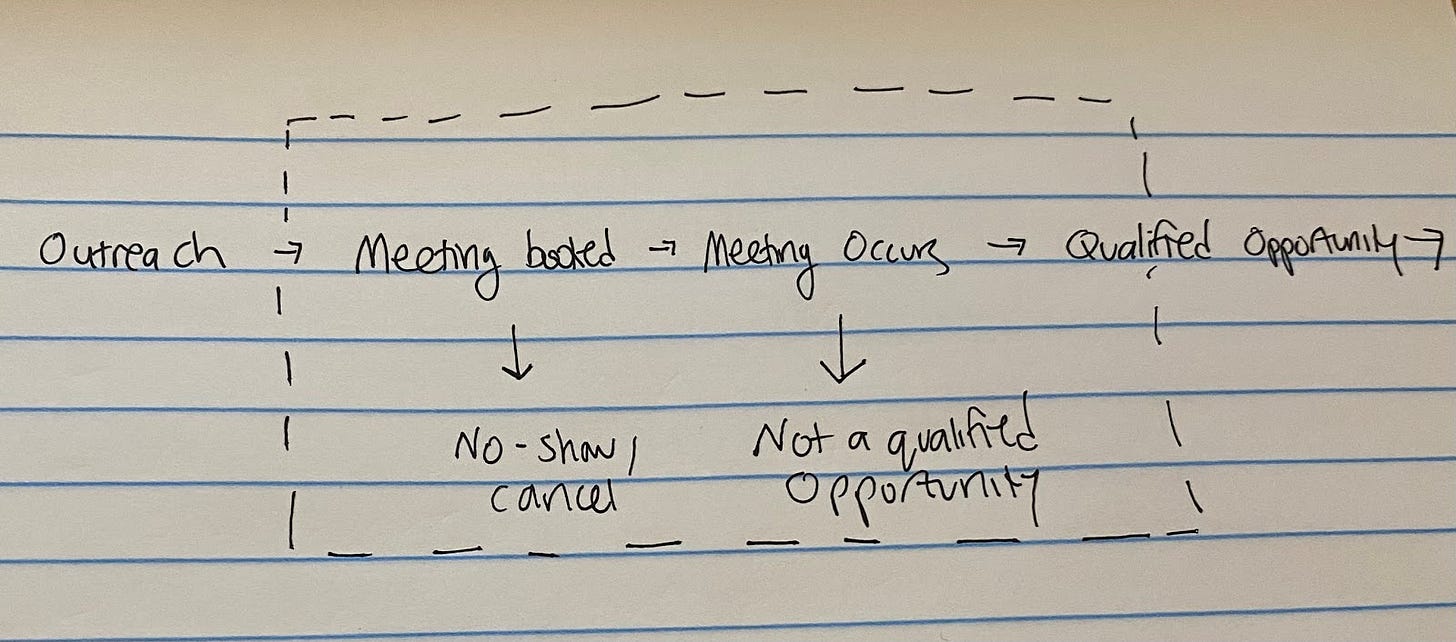 Outreach → Meeting booked → Meeting Occurs → Qualified Opportunity →
↓ ↓
No-show/ Not a qualified
cancel Opportunity